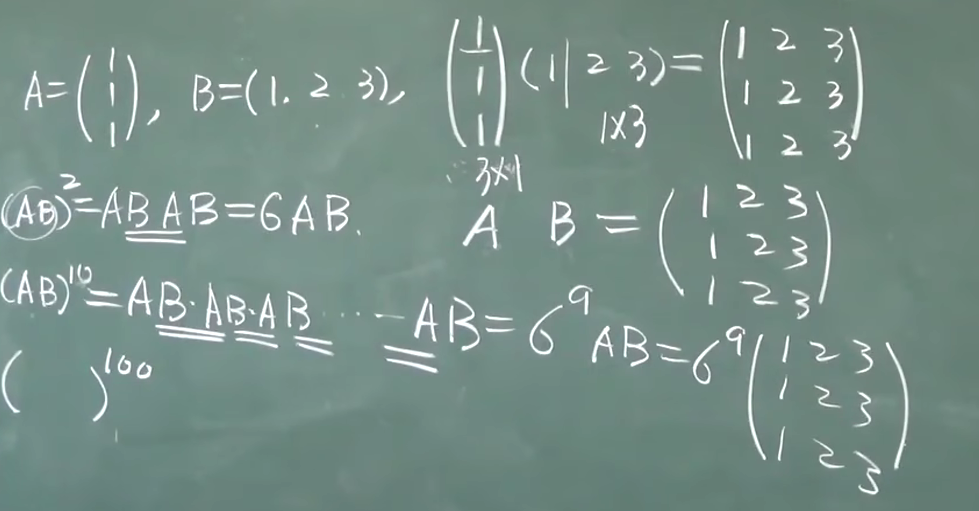 A=(1 1 1), B=(1. 2 3), (1 1 1)(1|2 3)=(1 2 3
1 2 3
1 2 3)
3×1 1×3
(AB)²=ABAB=6AB. A B=(1 2 3
1 2 3
1 2 3)
(AB)¹⁰=AB·AB·AB····-AB=6⁹AB=6⁹(1 2 3
1 2 3
1 2 3)
( )¹⁰⁰